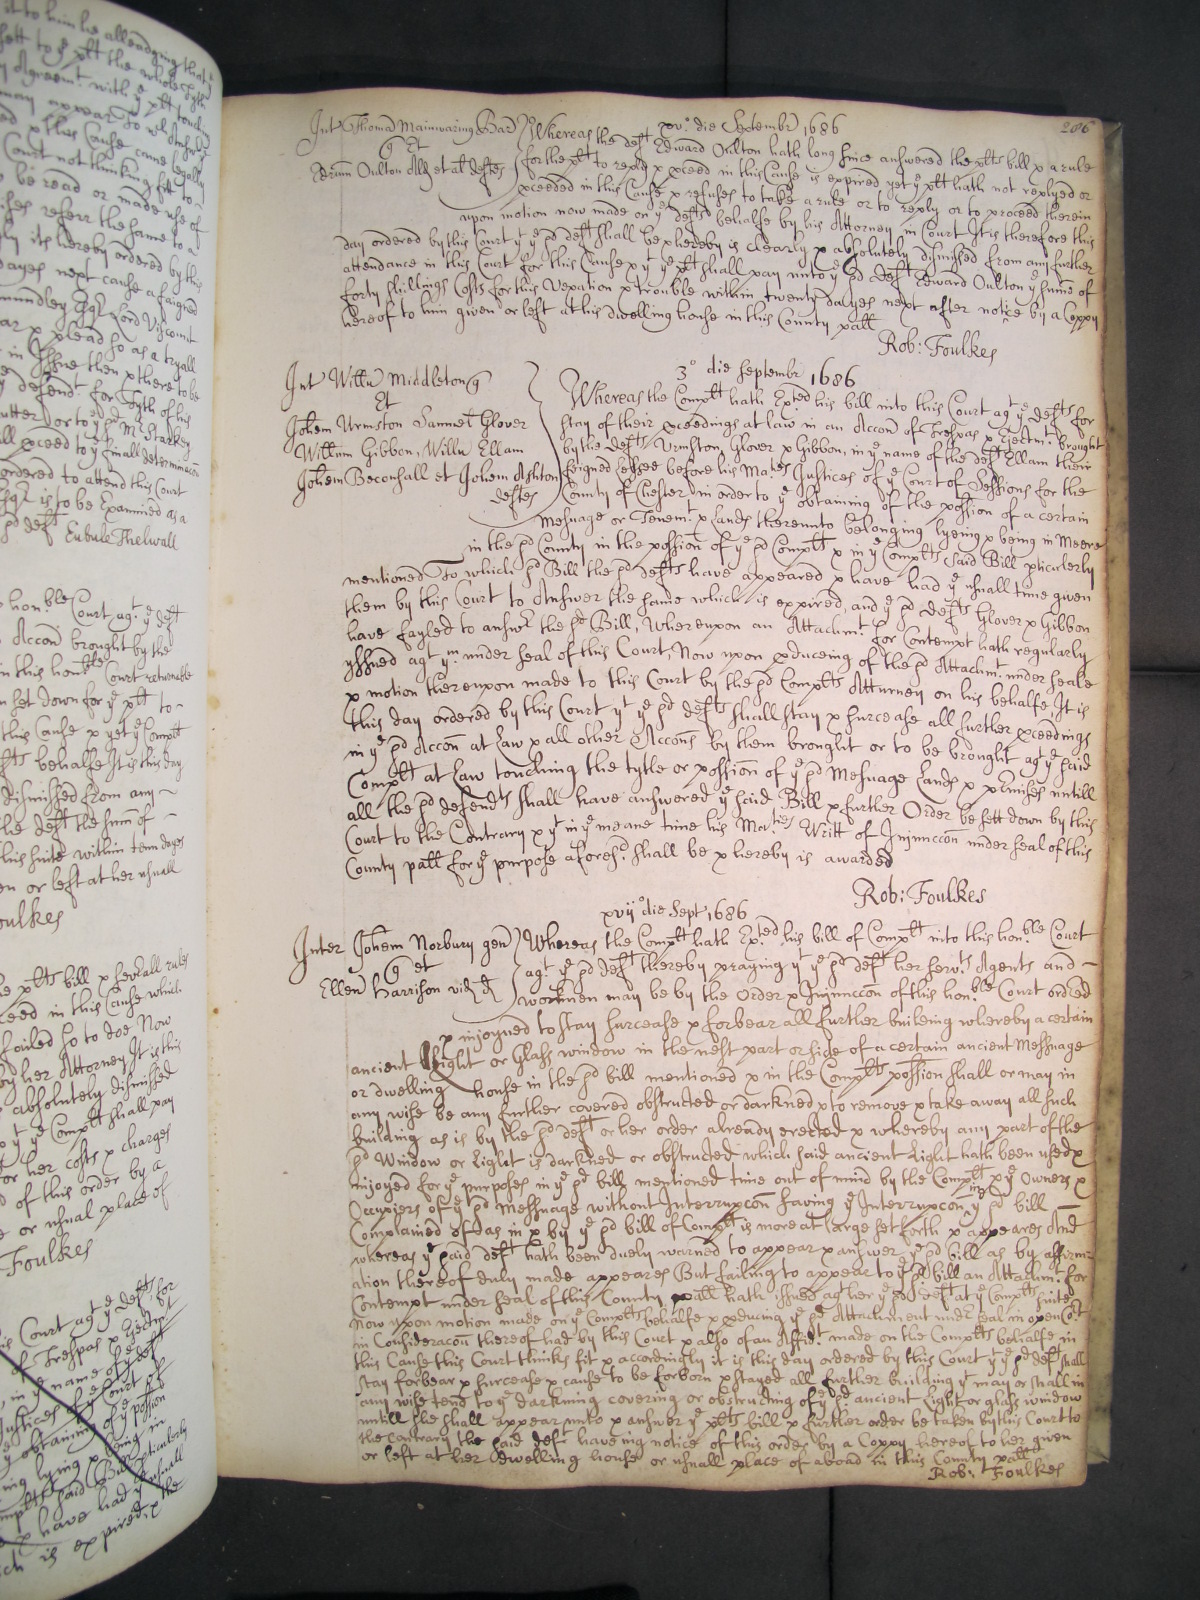 it to him he alleadging that
sett to ye plt the whole tyth
Agreemt. with ye plt touching
may appear to
x this Cause came legally
Court not thinking fitt to
be read or made use of
referr the same to a
its hereby ordered by this
dayes next cause a faigned
Lord Viscount
x plead so as a tryall
in Issue then x there to be
defendt. for Tyth of his
or to ye sd Mr Starkey
xceed to ye finall determinacon
ordered to attend this Court
is to be Examined as a
sd deft Eubule Thelwall
honble Court agt ye deft
Accon brought by the
in this honble Court returnable
set down for ye plt to
this Cause x yet ye Complt
behalfe It is this day
dismissed from any
the deft the sum of
this suite within tenn dayes
or left at her usuall
Foulkes
plts bill x severall rules
xceed in this Cause which
failed so to doe Now
by her Attorney It is this
absolutely dismissed
yt ye Complt shall pay
for her costs x charges
of this order by a
or usual place of
Foulkes
Court agt ye defts for
of Trespas x Ejectmt
in ye name of ye deft
Justices of ye Court of
obtaining of ye possion
lying x being in
said Bill pticulerly
x have had ye usuall
is expired, x the
206
xvo. die Septembr 1686
Int Thomam Mainwaring Bart
q Et
Oulton als et al deftes
Whereas the deft Edward Oulton hath long since answered the plts bill x a rule
for the plt to reply x xceed in this Cause is expired yet ye plt hath not replyed or
xceeded in this Cause x refuses to take a rule or to reply or to proceed therein
upon motion now made on ye defts behalfe by his Attorney in Court It is therefore this
day ordered by this Court yt ye sd deft shall be x hereby is clearly x absolutely dismissed from any further
attendance in this Court for this Cause x yt ye plt shall pay unto ye sd deft Edward Oulton ye summe of
forty shillings Costs for this vexation x trouble within twenty dayes next after notice by a Coppy
hereof to him given or left at his dwelling house in this County patt
Rob: Foulkes
3o die Septembr 1686
Int Willm Middleton q
Et
Johem Urmston Samuel Glover
Willum Gibbon, Willm Ellam
Johem Beconsall et Johem Ashton
deftes
Whereas the Complt hath Exted his bill into this Court agt ye defts for
stay of their xceedings at law in an Accon of Trespas x Ejectmt. brought
by the defts Urmston, Glover x Gibbon, in ye name of the deft Ellam their
feigned Lessee before his Maties Justices of ye Court of Sessions for the
County of Chester in order to ye obtaining of the possion of a certain
Mesuage or Tenemt. x Lands thereunto belonging lyeing x being in Meere
in the sd County in the possion of ye sd Complt x in ye Complts said Bill pticulerly
mentioned To which sd Bill the sd defts have appeared x have had ye usuall time given
them by this Court to Answer the same which is expired, and ye sd defts Glover x Gibbon
have fayled to answr the sd Bill, Whereupon an Attachmt. for Contempt hath regularly
yssued agt ym under seal of this Court, Now upon xduceing of the sd Attachmt. under seale
x motion thereupon made to this Court by the sd Complts Atturney on his behalfe It is
this day ordered by this Court yt ye sd defts shall stay x surcease all further xceedings
in ye sd Accon at Law x all other Accons by them brought or to be brought agt ye said
Complt at Law touching the tytle or possion of ye sd Mesuage Lands x xmises untill
all the sd defendts shall have answered ye said Bill x further Order be sett down by this
Court to the Contrary x yt in ye meane time his Maties Writt of Injunccon under seal of this
County patt for ye purpose aforesd. shall be x hereby is awarded
Rob: Foulkes
xvijo die Sept 1686
Inter Johem Norbury gen
q et
Ellen Harrison vid d
Whereas the Complt hath Exted his bill of Complt into this honble Court
agt ye sd deft thereby praying yt ye sd deft her servts Agents and
workmen may be by the Order x Injunccon of this honble Court ordered
x injoyned to stay surcease x forbear all further building whereby a certain
ancient Light or Glass window in the west part or side of a certain ancient Messuage
or dwelling house in the sd bill mentioned x in the Complts possion shall or may in
any wise be any further covered obstructed or darkned x to remove x take away all such
building as is by the sd deft or her order already erected x whereby any part of the
sd Window or Light is darkned or obstructed which said ancient Light hath been used x
injoyed for ye purposes in ye sd bill mentioned time out of mind by the Complt x ye Owners x
Occupiers of ye sd Messuage without Interrupcon saving ye Interrupcon in ye sd bill
Complained of as in x by ye sd bill of Complt is more at large set forth x appeares And
whereas ye said deft hath been duely warned to appear x answer ye sd bill as by affirm-
ation thereof duly made appeares But failing to appear to ye sd bill an Attachmt. for
Contempt under seal of this County patt hath issued agt her ye sd deft at ye Complts suite
Now upon motion made on ye Complts behalfe x xducing ye sd Attachment undr seal in open Cort
in Consideracon thereof had by this Court x also of an Affidt made on the Complts behalfe in
this Cause this Court thinks fit x accordingly it is this day ordered by this Court yt ye sd deft shall
stay forbear x surcease x cause to be forborn x stayed all further building yt may or shall in
any wise tend to ye darkning covering or obstructing of ye sd ancient Light or glass window
untill she shall appear unto x answer ye plts bill x further order be taken by this Court to
the Contrary the said deft haveing notice of this order by a Coppy hereof to her given
or left at her dwelling house or usuall place of aboad in this County patt
Rob: Foulkes